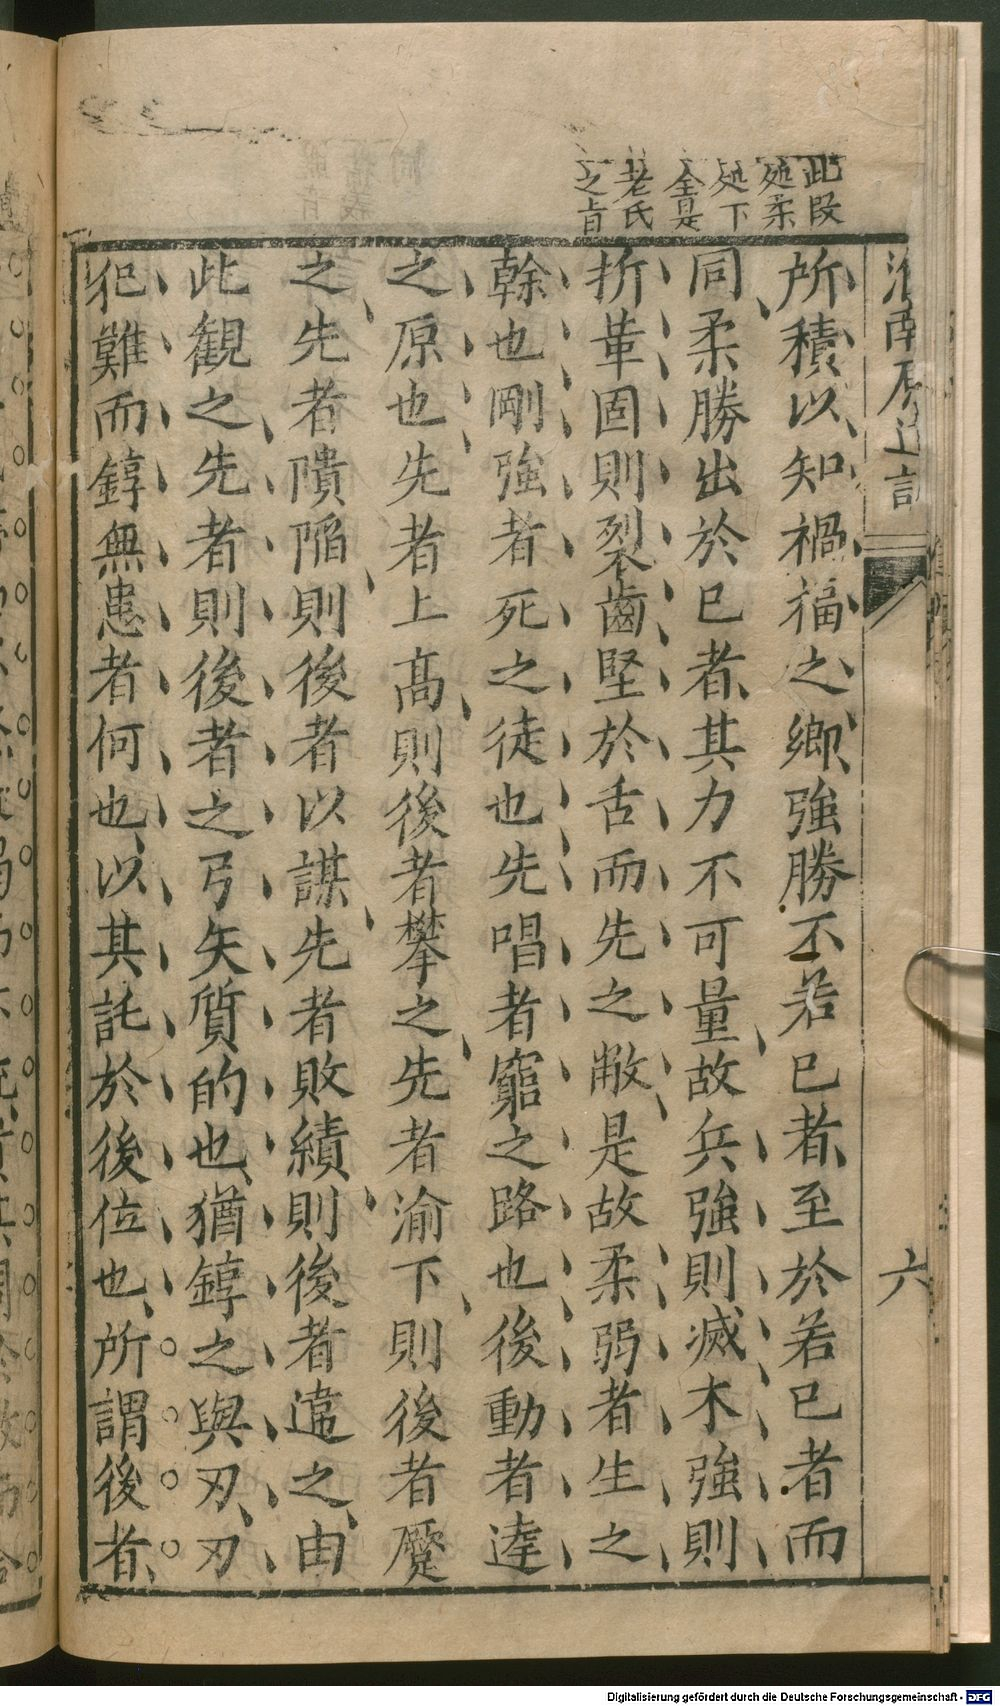 淮南原道訓
六
此段
處柔
處下
全是
老氏
之旨
所積以知禍福之鄉強勝不若已者至於若已者而
同柔勝出於已者其力不可量故兵強則滅木強則
折革固則裂齒堅於舌而先之敝是故柔弱者生之
榦也剛強者死之徒也先唱者窮之路也後動者達
之原也先者上高則後者攀之先者渝下則後者蹷
之先者隤陷則後者以謀先者敗績則後者違之由
此觀之先者則後者之弓矢質的也猶錞之與刃刃
犯難而錞無患者何也以其託於後位也所謂後者
Digitalisierung gefördert durch die Deutsche Forschungsgemeinschaft - DFG